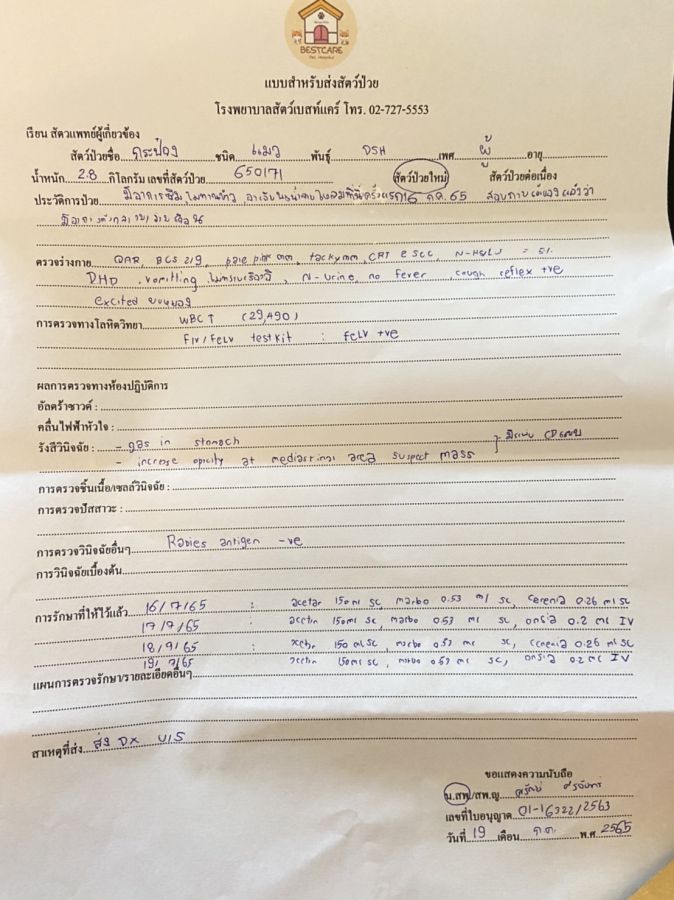 BESTCARE
Pet Hospital
แบบสำหรับส่งสัตว์ป่วย
โรงพยาบาลสัตว์เบสท์แคร์ โทร. 02-727-5553
เรียน สัตวแพทย์ผู้เกี่ยวข้อง
สัตว์ป่วยชื่อ กระป๋อง ชนิด แมว พันธุ์ DSH เพศ ผู้ อายุ
น้ำหนัก 2.8 กิโลกรัม เลขที่สัตว์ป่วย 650171 สัตว์ป่วยใหม่ สัตว์ป่วยต่อเนื่อง
ประวัติการป่วย มีอาการซึม ไม่ทานข้าว 16 กค. 65
ตรวจร่างกาย QAR, BCS 2/9, pale pink mm, tacky mm, CRT 2 sec,
DHD, vomitting, N-urine, no fever, cough reflex +ve
excited
การตรวจทางโลหิตวิทยา WBC ↑ (29,490)
FIV/FeLV testkit : FeLV +ve
ผลการตรวจทางห้องปฏิบัติการ
อัลตร้าซาวด์ :
คลื่นไฟฟ้าหัวใจ :
รังสีวินิจฉัย : - gas in stomach
- increase opicity at mediastinal area suspect mass
การตรวจชิ้นเนื้อ/เซลล์วินิจฉัย :
การตรวจปัสสาวะ :
การตรวจวินิจฉัยอื่นๆ Rabies antigen -ve
การวินิจฉัยเบื้องต้น
การรักษาที่ให้ไว้แล้ว 16/7/65 : acetar 150 ml sc, marbo 0.53 ml sc, cerenia 0.26 ml sc
17/7/65 : 150 ml sc, marbo 0.53 ml sc, onsia 0.2 ml IV
: 150 ml sc, marbo 0.53 ml sc, cerenia 0.26 ml sc
19/7/65 150 ml sc, marbo 0.53 ml sc, onsia 0.2 ml IV
แผนการตรวจรักษา/รายละเอียดอื่นๆ
สาเหตุที่ส่ง ส่ง DX U/S
ขอแสดงความนับถือ
น.สพ./สพ.ญ.
เลขที่ใบอนุญาต 01-16322/2563
วันที่ 19 เดือน ก.ค. พ.ศ. 2565